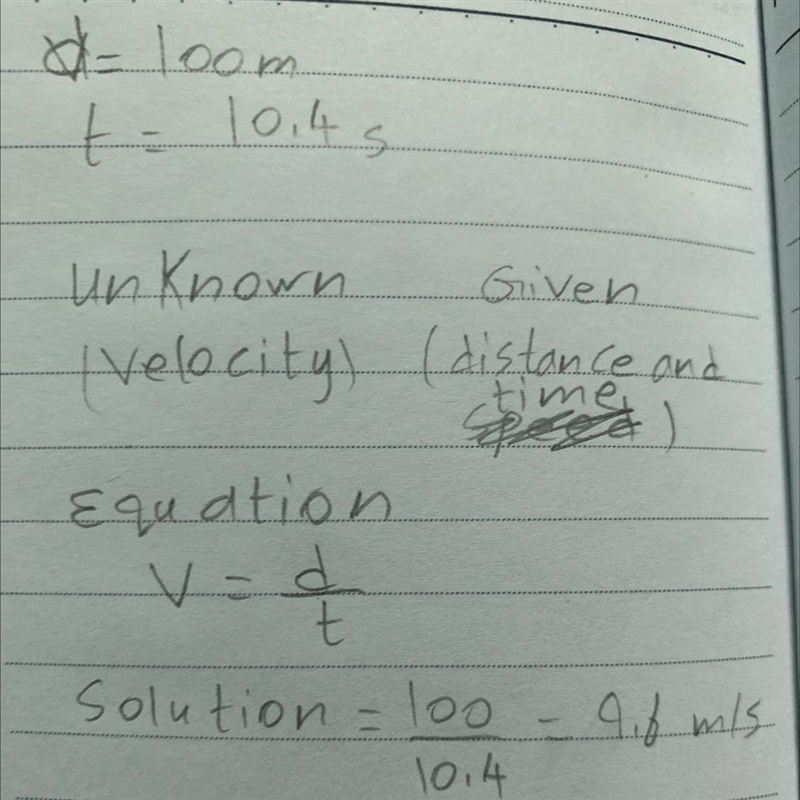 d = 100m
t = 10.4 s
unKnown Given
(velocity) (distance and
time)
Equation
V = d/t
Solution = 100/10.4 = 9.6 m/s